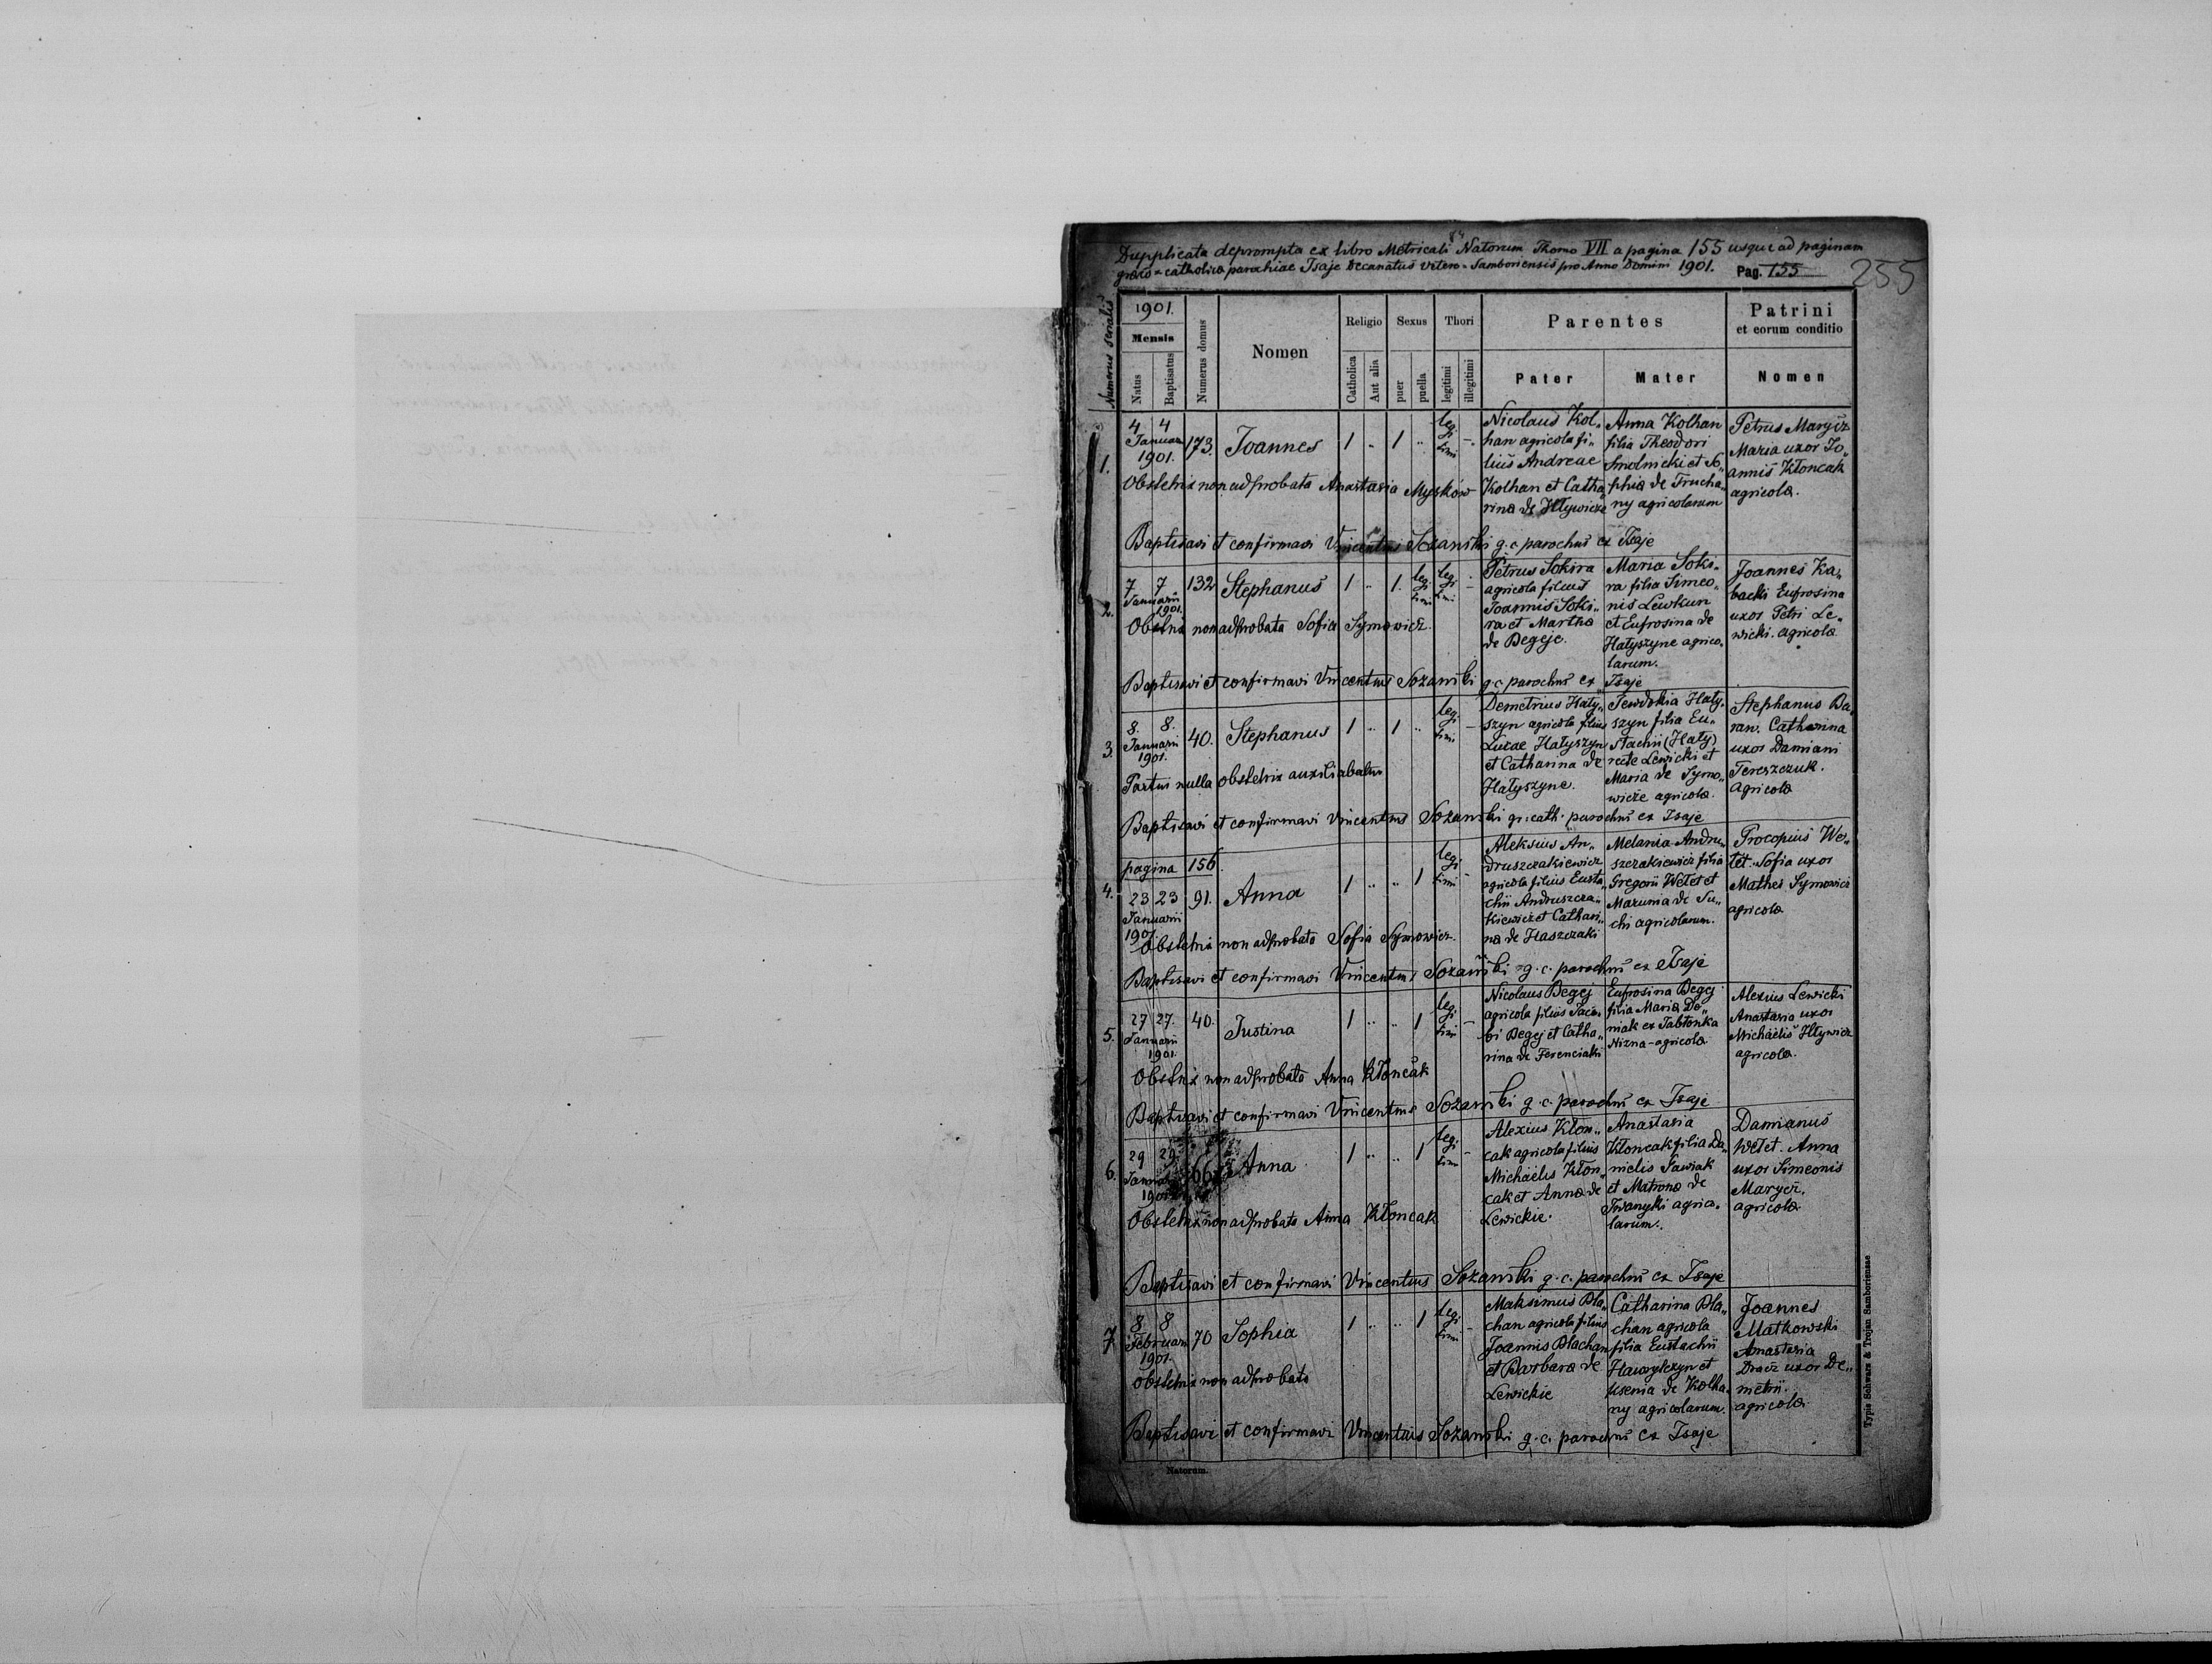 Dupplicata deprompta ex libro Metricali Natorum Thomo VII a pagina 155 usque ad paginam
graeco-catholica parochiae Isaje Decanatus Vetero-Samboriensis pro Anno Domini 1901. Pag. 155 255
Numerus serialis
1901.
Mensis
Natus
Baptisatus
Numerus domus
Nomen
Religio
Catholica
Aut alia
Sexus
puer
puella
Thori
legitimi
illegitimi
Parentes
Pater
Mater
Patrini
et eorum conditio
Nomen
1.
4 4
Januar
1901.
173.
Joannes
1 " 1 "
legi
timi
-
Nicolaus Kol-
han agricola fi-
lius Andreae
Kolhan et Catha
rina de Hływicze
Anna Kolhan
filia Theodori
Smolnicki et So
phia de Trucha
ny agricolarum
Petrus Marycz
Maria uxor Jo
annis Kłoncak
agricola.
Obstetrix non adprobata Anastasia Mysków
Baptisavi et confirmavi Vincentius Sozański g.c. parochus ex Isaje
2.
7 7
Januarii
1901.
132
Stephanus
1 " 1.
legi
timi
legi
timi
-
Petrus Sokira
agricola filius
Joannis Soki-
ra et Martha
de Degeje.
Maria Soki-
ra filia Simeo-
nis Lewkun
et Eufrosina de
Hatyszyne agrico-
larum.
Joannes Ka
backi Eufrosina
uxor Petri Le
wicki. agricola
Obstrix non adprobata Sofia Symowicz.
Baptisavi et confirmavi Vincentius Sozański g.c. parochus ex Isaje
3.
8. 8.
Januarii
1901.
40.
Stephanus
1 " 1 "
legi
timi
-
Demetrius Haty
szyn agricola filius
Lucae Hatyszyn
et Catharina de
Hatyszyne.
Tewdokia Haty-
szyn filia Eu-
stachii (Haty)
recte Lewicki et
Maria de Symo
wicze agricola.
Stephanus Ba
ran. Catharina
uxor Damiani
Tereszczuk.
agricola
Partui nulla obstetrix auxiliabatur
Baptisavi et confirmavi Vincentius Sozański gr. cath. parochus ex Isaje
pagina 156.
4.
23 23
Januarii
1901.
91.
Anna
1 " " 1
legi
timi
-
Aleksius An-
druszczakiewicz
agricola filius Eusta
chii Andruszcza-
kiewicz et Cathari-
na de Haszczaki
Melania Andru
szczakiewicz filia
Gregorii Wełet et
Maruna de Su-
chi agricolarum.
Procopius We-
łet. Sofia uxor
Mathei Symowicz
agricola
Obstetrix non adprobata Sofia Symowicz.
Baptisavi et confirmavi Vincentius Sozański g.c. parochus ex Isaje
5.
27 27.
Januarii
1901.
40.
Justina
1 " " 1
legi
timi
-
Nicolaus Degej
agricola filius Jaco-
bi Degej et Catha-
rina de Ferenciaki
Eufrosina Degej
filia Maria Do-
niak ex Jabłonka
Nizna - agricola
Alexius Lewicki
Anastasia uxor
Michaelis Hływicz
agricola.
Obstrix non adprobata Anna Kłoncak
Baptisavi et confirmavi Vincentius Sozański g.c. parochus ex Isaje
6.
29 29
Januarii
1901
66
Anna
1 " " 1
legi
timi
-
Alexius Kłon-
cak agricola filius
Michaelis Kłon-
cak et Anna de
Lewickie.
Anastasia
Kłoncak filia Da
nielis Sawiak
et Matrona de
Iwanyki agrico-
larum.
Damianus
Wełet. Anna
uxor Simeonis
Marycz.
agricola
Obstetrix non adprobata Anna Kłoncak
Baptisavi et confirmavi Vincentius Sozański g.c. parochus ex Isaje
7.
8 8
Februarii
1901.
70
Sophia
1 " " 1
legi
timi
-
Maksimus Bła
chan agricola filius
Joannis Błachan
et Barbara de
Lewickie
Catharina Bła
chan agricola
filia Eustachii
Hawrylczyn et
Ksenia de Kolha-
ny agricolarum.
Joannes
Matkowski
Anastasia
Dracz uxor De-
metrii.
agricola
Obstetrix non adprobata
Baptisavi et confirmavi Vincentius Sozański g.c. parochus ex Isaje
Natorum.
Typis Schwarz & Trojan Samboriensae